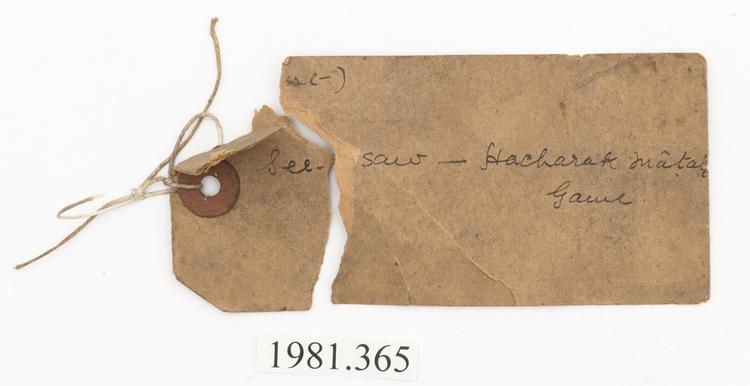 See-saw — Hacharak mâtak
Game
1981.365